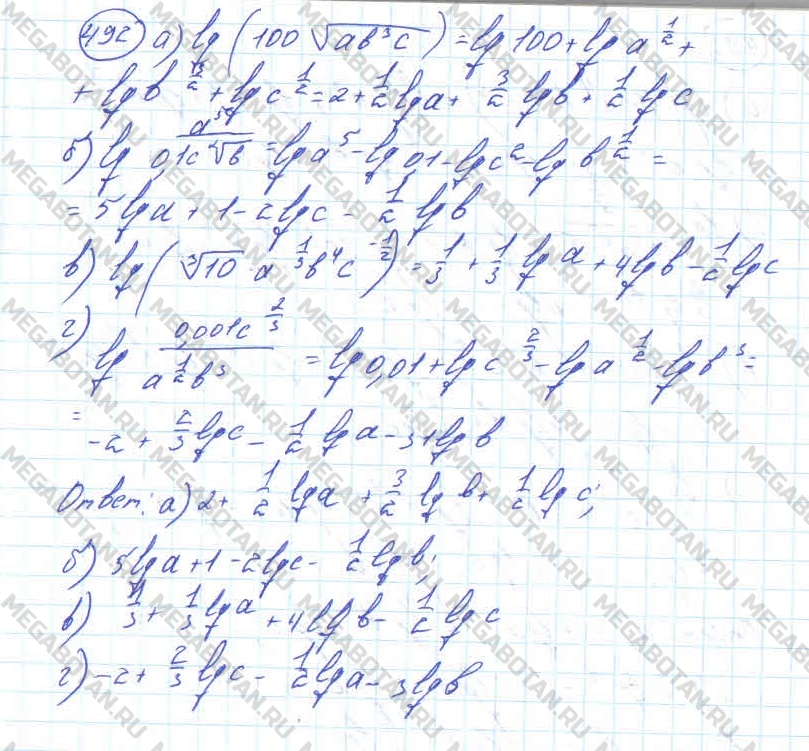 492 а) lg (100 √(ab³c)) = lg 100 + lg a^(1/2) +
+ lg b^(3/2) + lg c^(1/2) = 2 + 1/2 lg a + 3/2 lg b + 1/2 lg c
б) lg a⁵/(0,1c²√b) = lg a⁵ - lg 0,1 - lg c² - lg b^(1/2) =
= 5 lg a + 1 - 2 lg c - 1/2 lg b
в) lg (∛10 a^(1/3) b⁴ c^(-1/2)) = 1/3 + 1/3 lg a + 4 lg b - 1/2 lg c
г) lg 0,001c^(2/3)/(a^(1/2) b³) = lg 0,01 + lg c^(2/3) - lg a^(1/2) - lg b³ =
= -2 + 2/3 lg c - 1/2 lg a - 3 lg b
Ответ: а) 2 + 1/2 lg a + 3/2 lg b + 1/2 lg c;
б) 5 lg a + 1 - 2 lg c - 1/2 lg b;
в) 1/3 + 1/3 lg a + 4 lg b - 1/2 lg c
г) -2 + 2/3 lg c - 1/2 lg a - 3 lg b
MEGABOTAN.RU